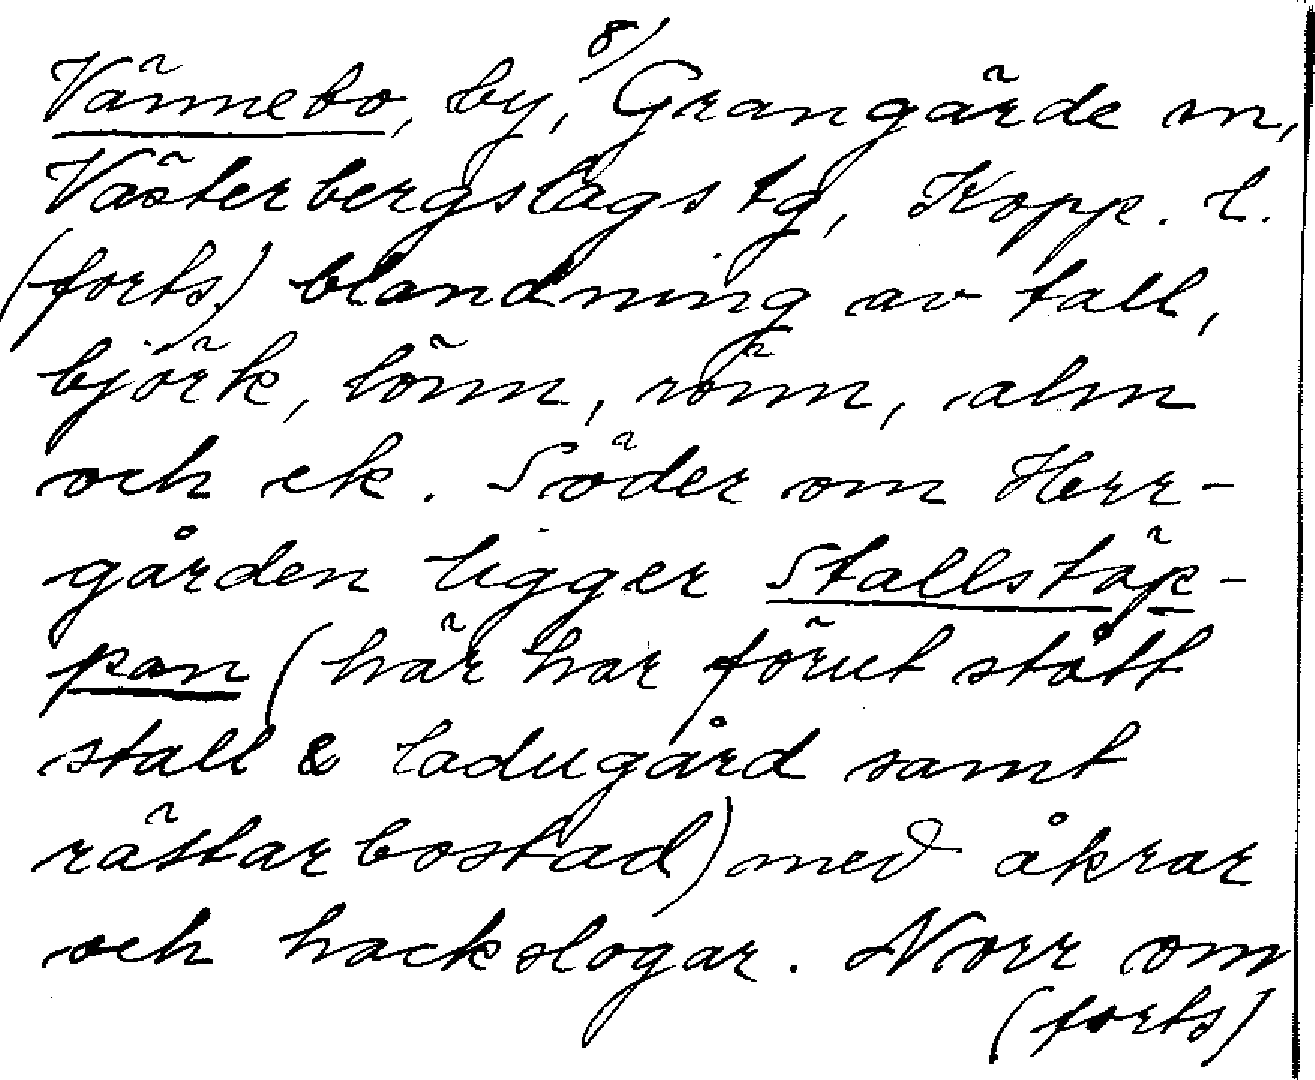 8/
Vännebo, by, Grangärde sn,
Västerbergslags tg, Kopp. l.
(forts) blandning av tall,
björk, lönn, rönn, alm
och ek. Söder om Herr-
gården ligger Stallstäp-
pan (här har förut stått
stall & ladugård samt
rättarbostad) med åkrar
och hackslogar. Norr om
(forts)